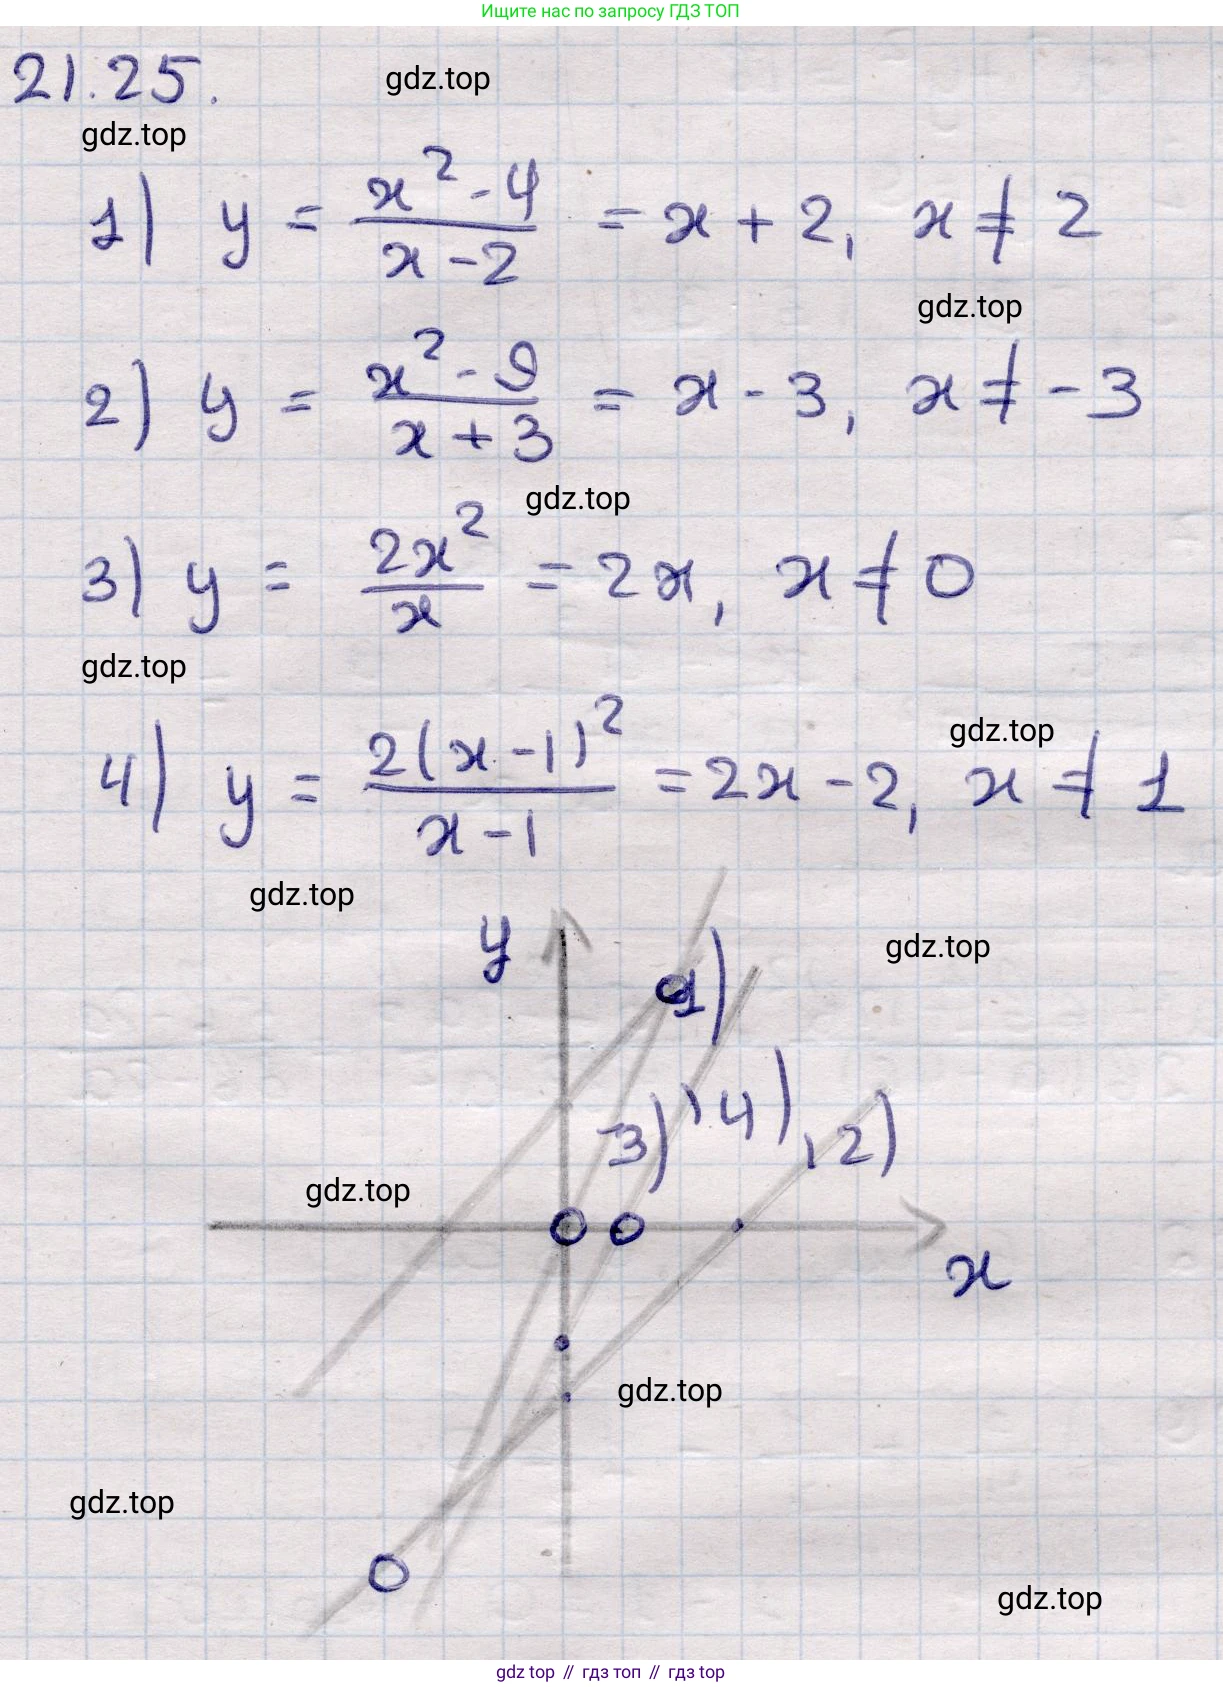 Ищите нас по запросу ГДЗ ТОП
21.25.
gdz.top
gdz.top
1) y = \frac{x^2 - 4}{x - 2} = x + 2, x ≠ 2
gdz.top
2) y = \frac{x^2 - 9}{x + 3} = x - 3, x ≠ -3
gdz.top
3) y = \frac{2x^2}{x} = 2x, x ≠ 0
gdz.top
gdz.top
4) y = \frac{2(x - 1)^2}{x - 1} = 2x - 2, x ≠ 1
gdz.top
y
gdz.top
1)
3) , 4) , 2)
gdz.top
x
gdz.top
gdz.top
gdz.top
gdz top // гдз топ // гдз top